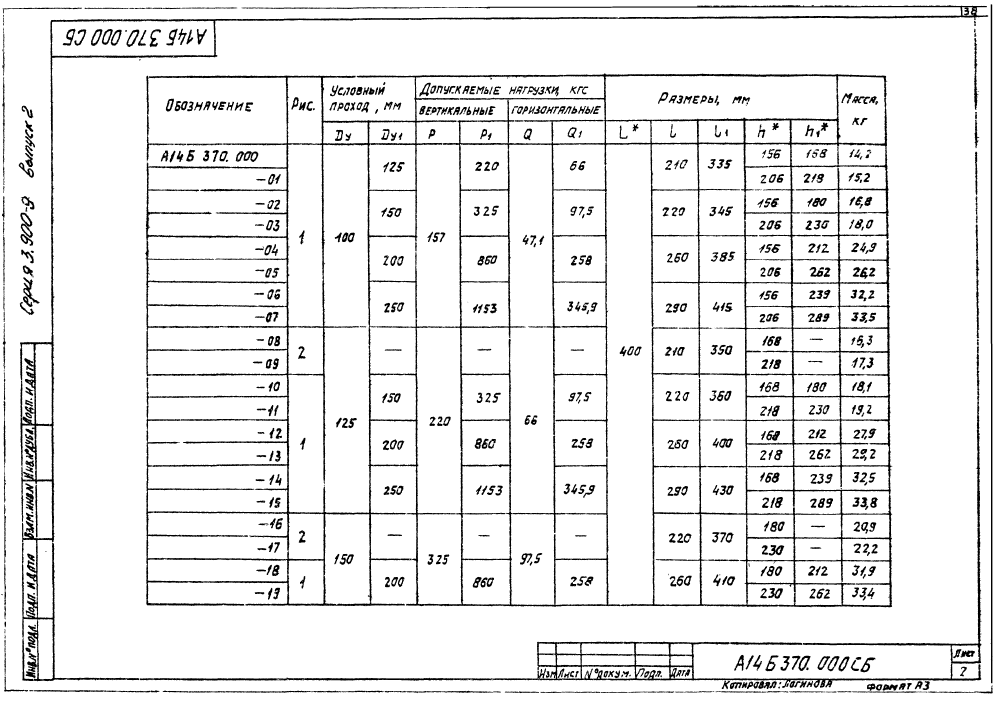 38
А14Б 370.000 СБ
Серия 3.900-9 Выпуск 2
Обозначение Рис. Условный проход, мм Допускаемые нагрузки, кгс Размеры, мм Масса, кг
вертикальные горизонтальные
Ду Ду1 P P1 Q Q1 L* l l1 h* h1*
А14Б 370.000 1 100 125 157 220 47,1 66 400 210 335 156 168 14,2
-01 206 218 15,2
-02 150 325 97,5 220 345 156 180 16,8
-03 206 230 18,0
-04 200 860 258 260 385 156 212 24,9
-05 206 262 26,2
-06 250 1153 345,9 290 415 156 239 32,2
-07 206 289 33,5
-08 2 125 — 220 — 66 — 210 350 168 — 16,3
-09 218 — 17,3
-10 1 150 325 97,5 220 360 168 180 18,1
-11 218 230 19,2
-12 200 860 258 260 400 168 212 27,9
-13 218 262 29,2
-14 250 1153 345,9 290 430 168 239 32,5
-15 218 289 33,8
-16 2 150 — 325 — 97,5 — 220 370 180 — 20,9
-17 230 — 22,2
-18 1 200 860 258 260 410 180 212 31,9
-19 230 262 33,4
Инв.№ подл. Подп. и дата Взам. инв.№ Инв.№ дубл. Подп. и дата
Изм Лист № докум. Подп. Дата
А14Б 370.000 СБ
Лист
2
Копировал: Логинова Формат А3